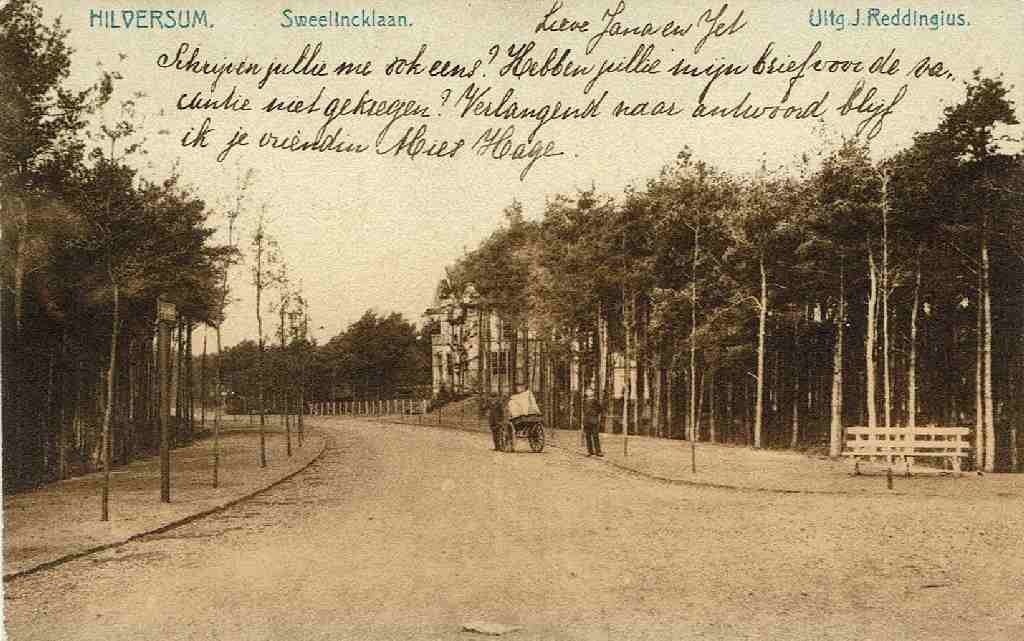 HILVERSUM. Sweelincklaan. Uitg. J. Reddingius.
Lieve Jana en Jet
Schrijven jullie me ook eens? Hebben jullie mijn brief voor de va-
cantie niet gekregen? Verlangend naar antwoord blijf
ik je vriendin Mies Hage.